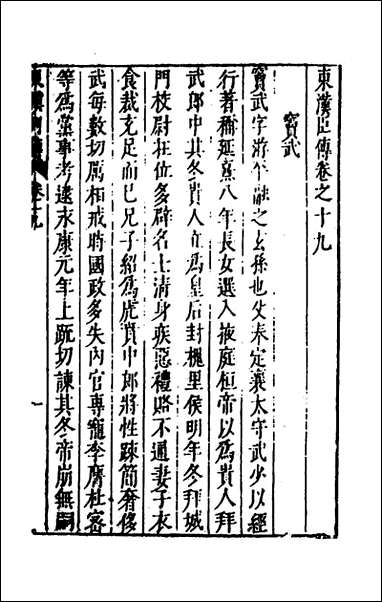 東漢臣傳卷之十九
竇武
竇武字游平融之玄孫也父奉定襄太守武少以經
行著稱延熹八年長女選入掖庭桓帝以爲貴人拜
武郎中其冬貴人立爲皇后封槐里侯明年冬拜城
門校尉在位多辟名士清身疾惡禮賂不通妻子衣
食裁充足而已兄子紹爲虎賁中郎將性疎簡奢侈
武每數切厲相戒時國政多失內官專寵李膺杜密
等爲黨事考逮永康元年上疏切諫其冬帝崩無嗣
卷十九
一